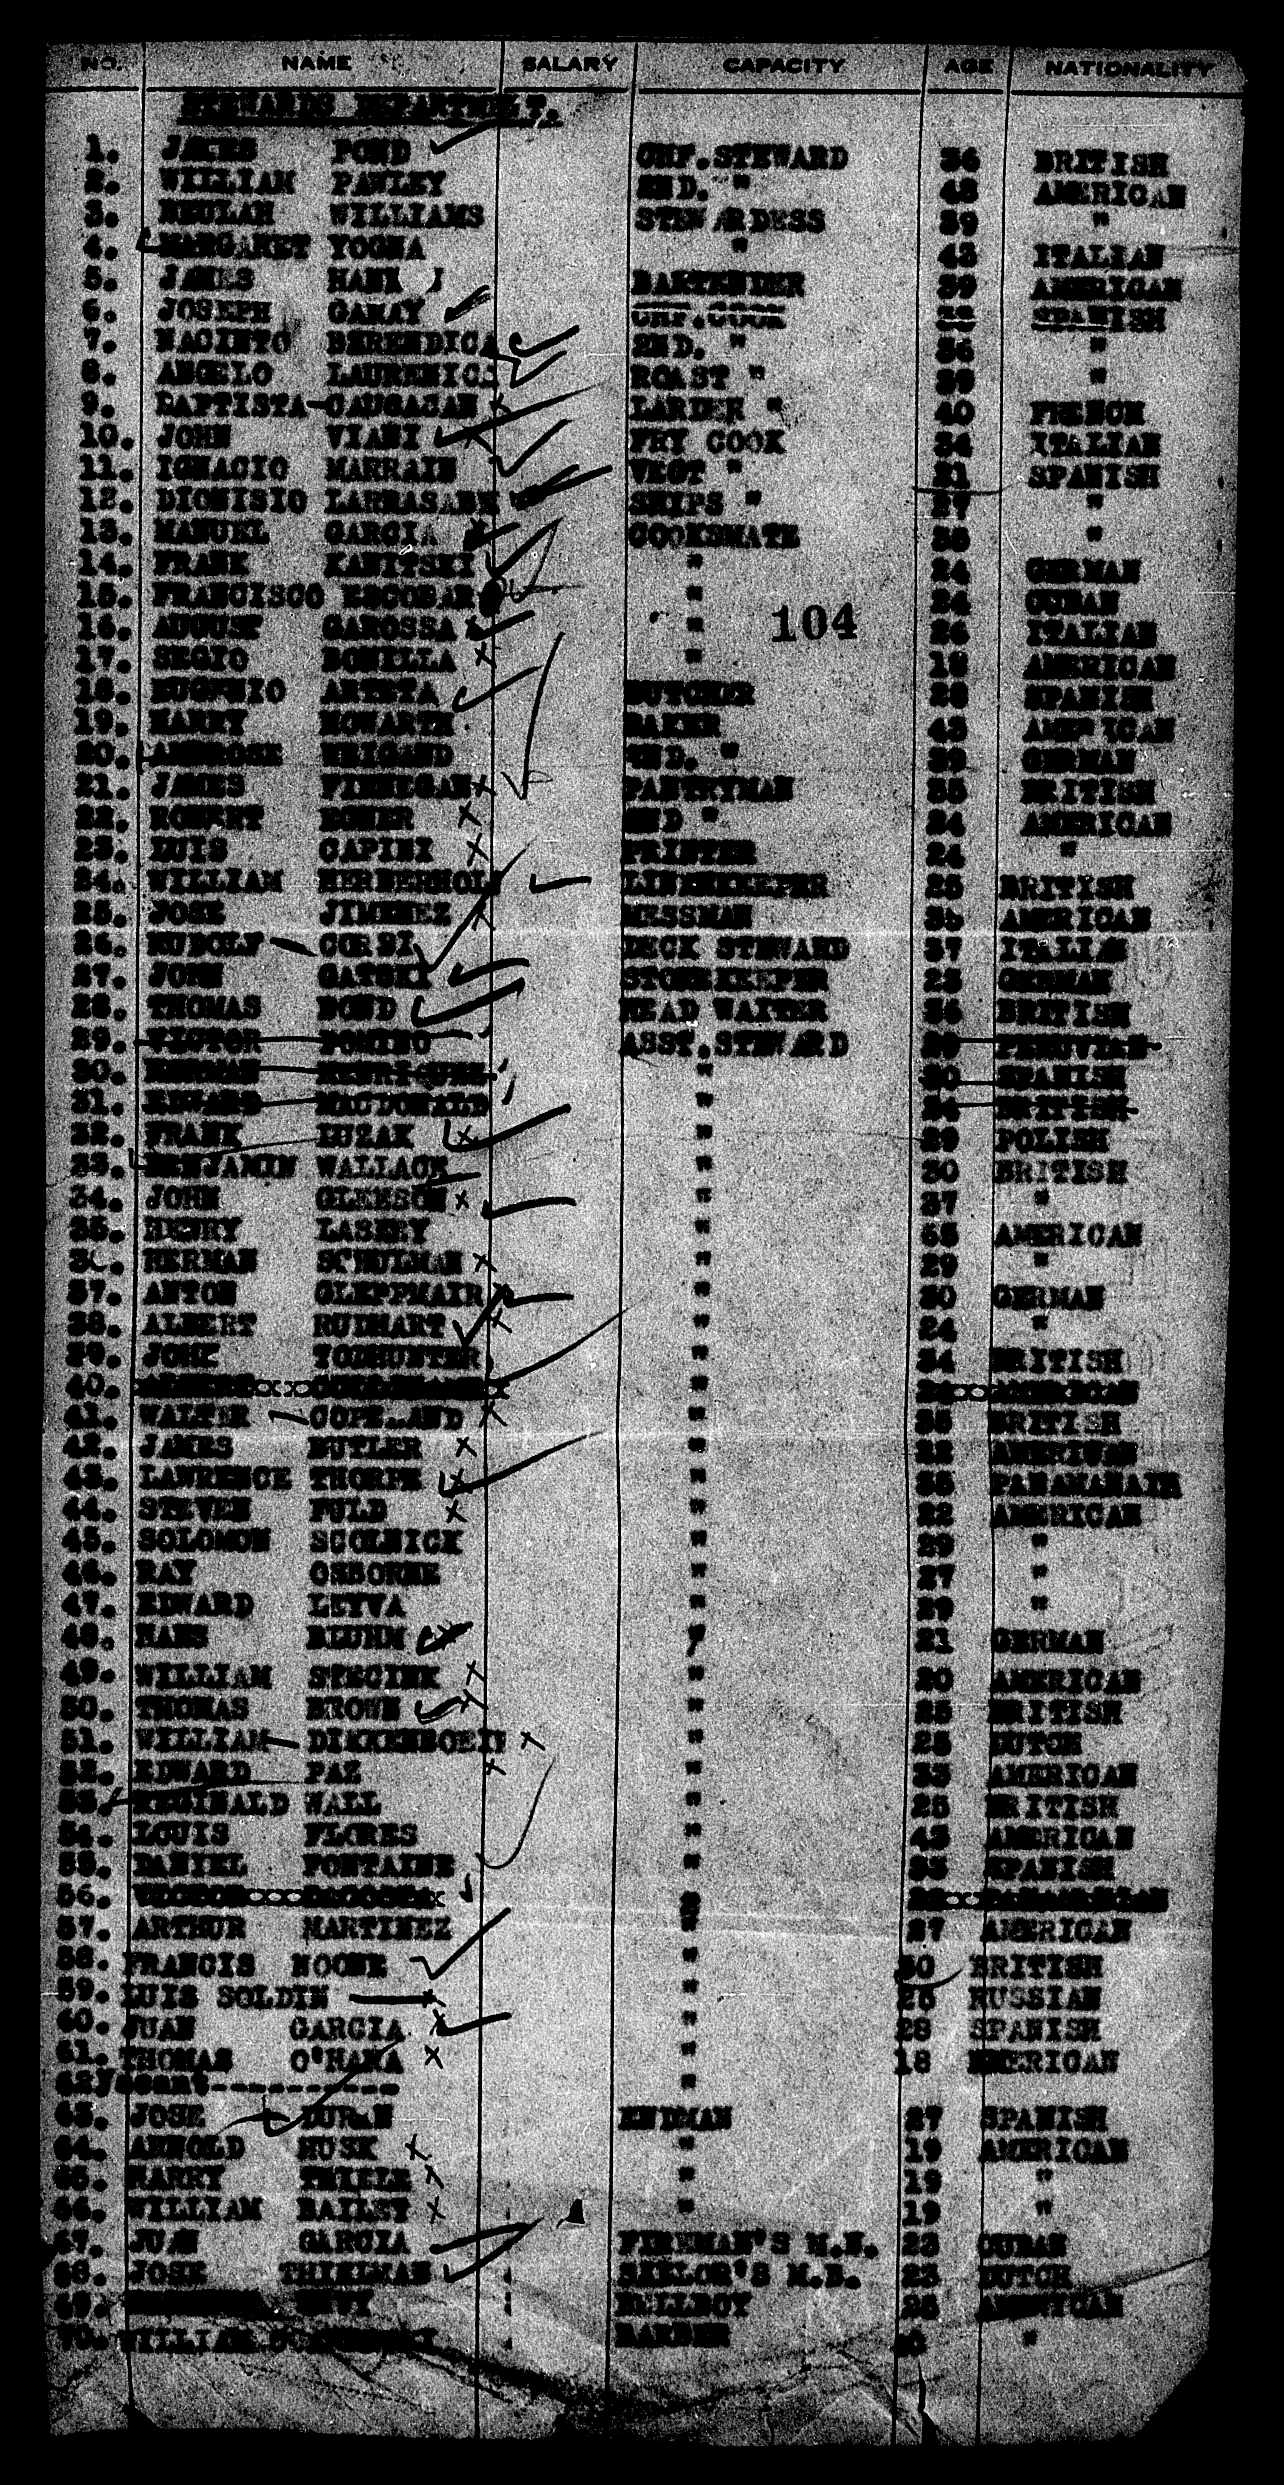 NO. NAME SALARY CAPACITY AGE NATIONALITY
STEWARDS DEPARTMENT.
1. JAMES POND CHF.STEWARD 36 BRITISH
2. WILLIAM PAWLEY 2ND. " 48 AMERICAN
3. BEULAH WILLIAMS STEWARDESS 39 "
4. MARGARET YOGNA " 43 ITALIAN
5. JAMES BARTENDER 39 AMERICAN
6. JOSEPH GARAY CHF.COOK SPANISH
7. BERENDICA 2ND. " 36 "
8. ANGELO ROAST " 39 "
9. BAPTISTA LARDER " 40 FRENCH
10. JOHN VIANI FRY COOK 34 ITALIAN
11. IGNACIO MARRAIN VEGT " 21 SPANISH
12. DIONISIO SHIPS " 27 "
13. MANUEL GARCIA COOKSMATE 35 "
14. FRANK KANITSKI " 24 GERMAN
15. FRANCISCO ESCOBAR " 24 CUBAN
104
16. AUGUST GAROSSA " 26 ITALIAN
17. SEGIO BONILLA " 19 AMERICAN
18. EUGENIO ARTETA BUTCHER 28 SPANISH
19. HARRY HOWARTH BAKER 43 AMERICAN
20. AMBROSE WEIGAND 2ND. " 39 GERMAN
21. JAMES FINNEGAN PANTRYMAN 35 BRITISH
22. ROBERT 2ND " 24 AMERICAN
23. LUIS CAPINI PRINTER 24 "
24. WILLIAM LINENKEEPER 25 BRITISH
25. JOSE JIMENEZ MESSMAN AMERICAN
26. RUDOLF CORSI DECK STEWARD 37 ITALIAN
27. JOHN STOREKEEPER 23 GERMAN
28. THOMAS POND HEAD WAITER 36 BRITISH
29. VICTOR ASST.STEWARD PERUVIAN
30. " 30 SPANISH
31. MACDONALD " BRITISH
32. FRANK LUZAK " 29 POLISH
33. BENJAMIN WALLACE " 30 BRITISH
34. JOHN GLEESON " 37 "
35. HENRY LASKEY " AMERICAN
36. HERMAN SCHULMAN " 29 "
37. ANTON GLEPPMAIR " 30 GERMAN
38. ALBERT RUDHART " 24 "
39. JOHN TODHUNTER " 34 BRITISH
40. " AMERICAN
41. WALTER COPELAND " 35 BRITISH
42. JAMES BUTLER " 22 AMERICAN
43. LAWRENCE THORPE " 35
44. STEVEN FULD " 22 AMERICAN
45. SOLOMON SCOLNICK " 29 "
46. RAY OSBORNE " 27 "
47. EDWARD LEYVA " 29 "
48. HANS BLUHM " 21 GERMAN
49. WILLIAM STEGINK " 20 AMERICAN
50. THOMAS BROWN " 25 BRITISH
51. WILLIAM " 25 DUTCH
52. EDWARD PAZ " 33 AMERICAN
53. REGINALD WALL " 25 BRITISH
54. LOUIS FLORES " 43 AMERICAN
55. DANIEL FONTAINE " 33 SPANISH
56. "
57. ARTHUR MARTINEZ " 27 AMERICAN
58. FRANCIS NOONE " 30 BRITISH
59. LUIS SOLDIN " RUSSIAN
60. JUAN GARCIA " 28 SPANISH
61. THOMAS O'HARA " 18 AMERICAN
62 Vacant----------- "
63. JOSE DURAN ENDMAN 27 SPANISH
64. ARNOLD MUSK " 19 AMERICAN
65. HARRY THIELE " 19 "
66. WILLIAM BAILEY " 19 "
67. JUAN GARCIA FIREMAN'S M.B. 23 CUBAN
68. JOSE THIELMAN SAILOR'S M.B. 23 DUTCH
69. BELLBOY 25 AMERICAN
70. WILLIAM BARBER "